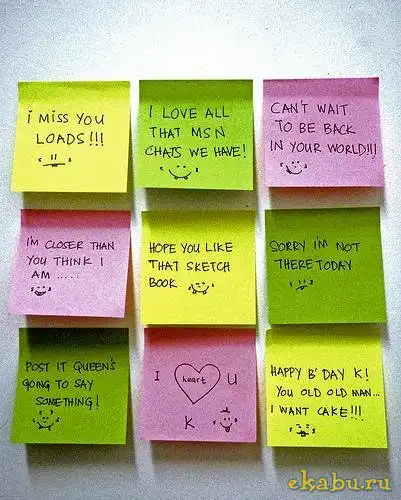 i MISS YOU
LOADS!!!
I LOVE ALL
THAT MSN
CHATS WE HAVE!
CAN'T WAIT
TO BE BACK
IN YOUR WORLD!!!
I'M CLOSER THAN
YOU THINK I
AM .....
HOPE YOU LIKE
THAT SKETCH
BOOK
SORRY I'M NOT
THERE TODAY
POST IT QUEEN'S
GOING TO SAY
SOMETHING!
I heart U
K
HAPPY B'DAY K!
YOU OLD OLD MAN...
I WANT CAKE!!!
ekabu.ru